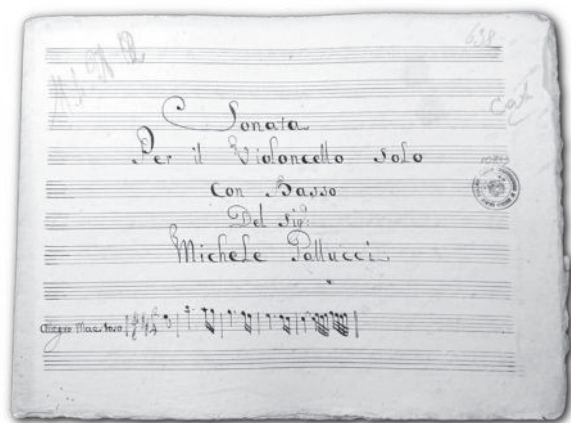 638
Sonata
Per il Violoncello Solo
Con Basso
Del Sig:
Michele Pallucci
Allegro Maestoso